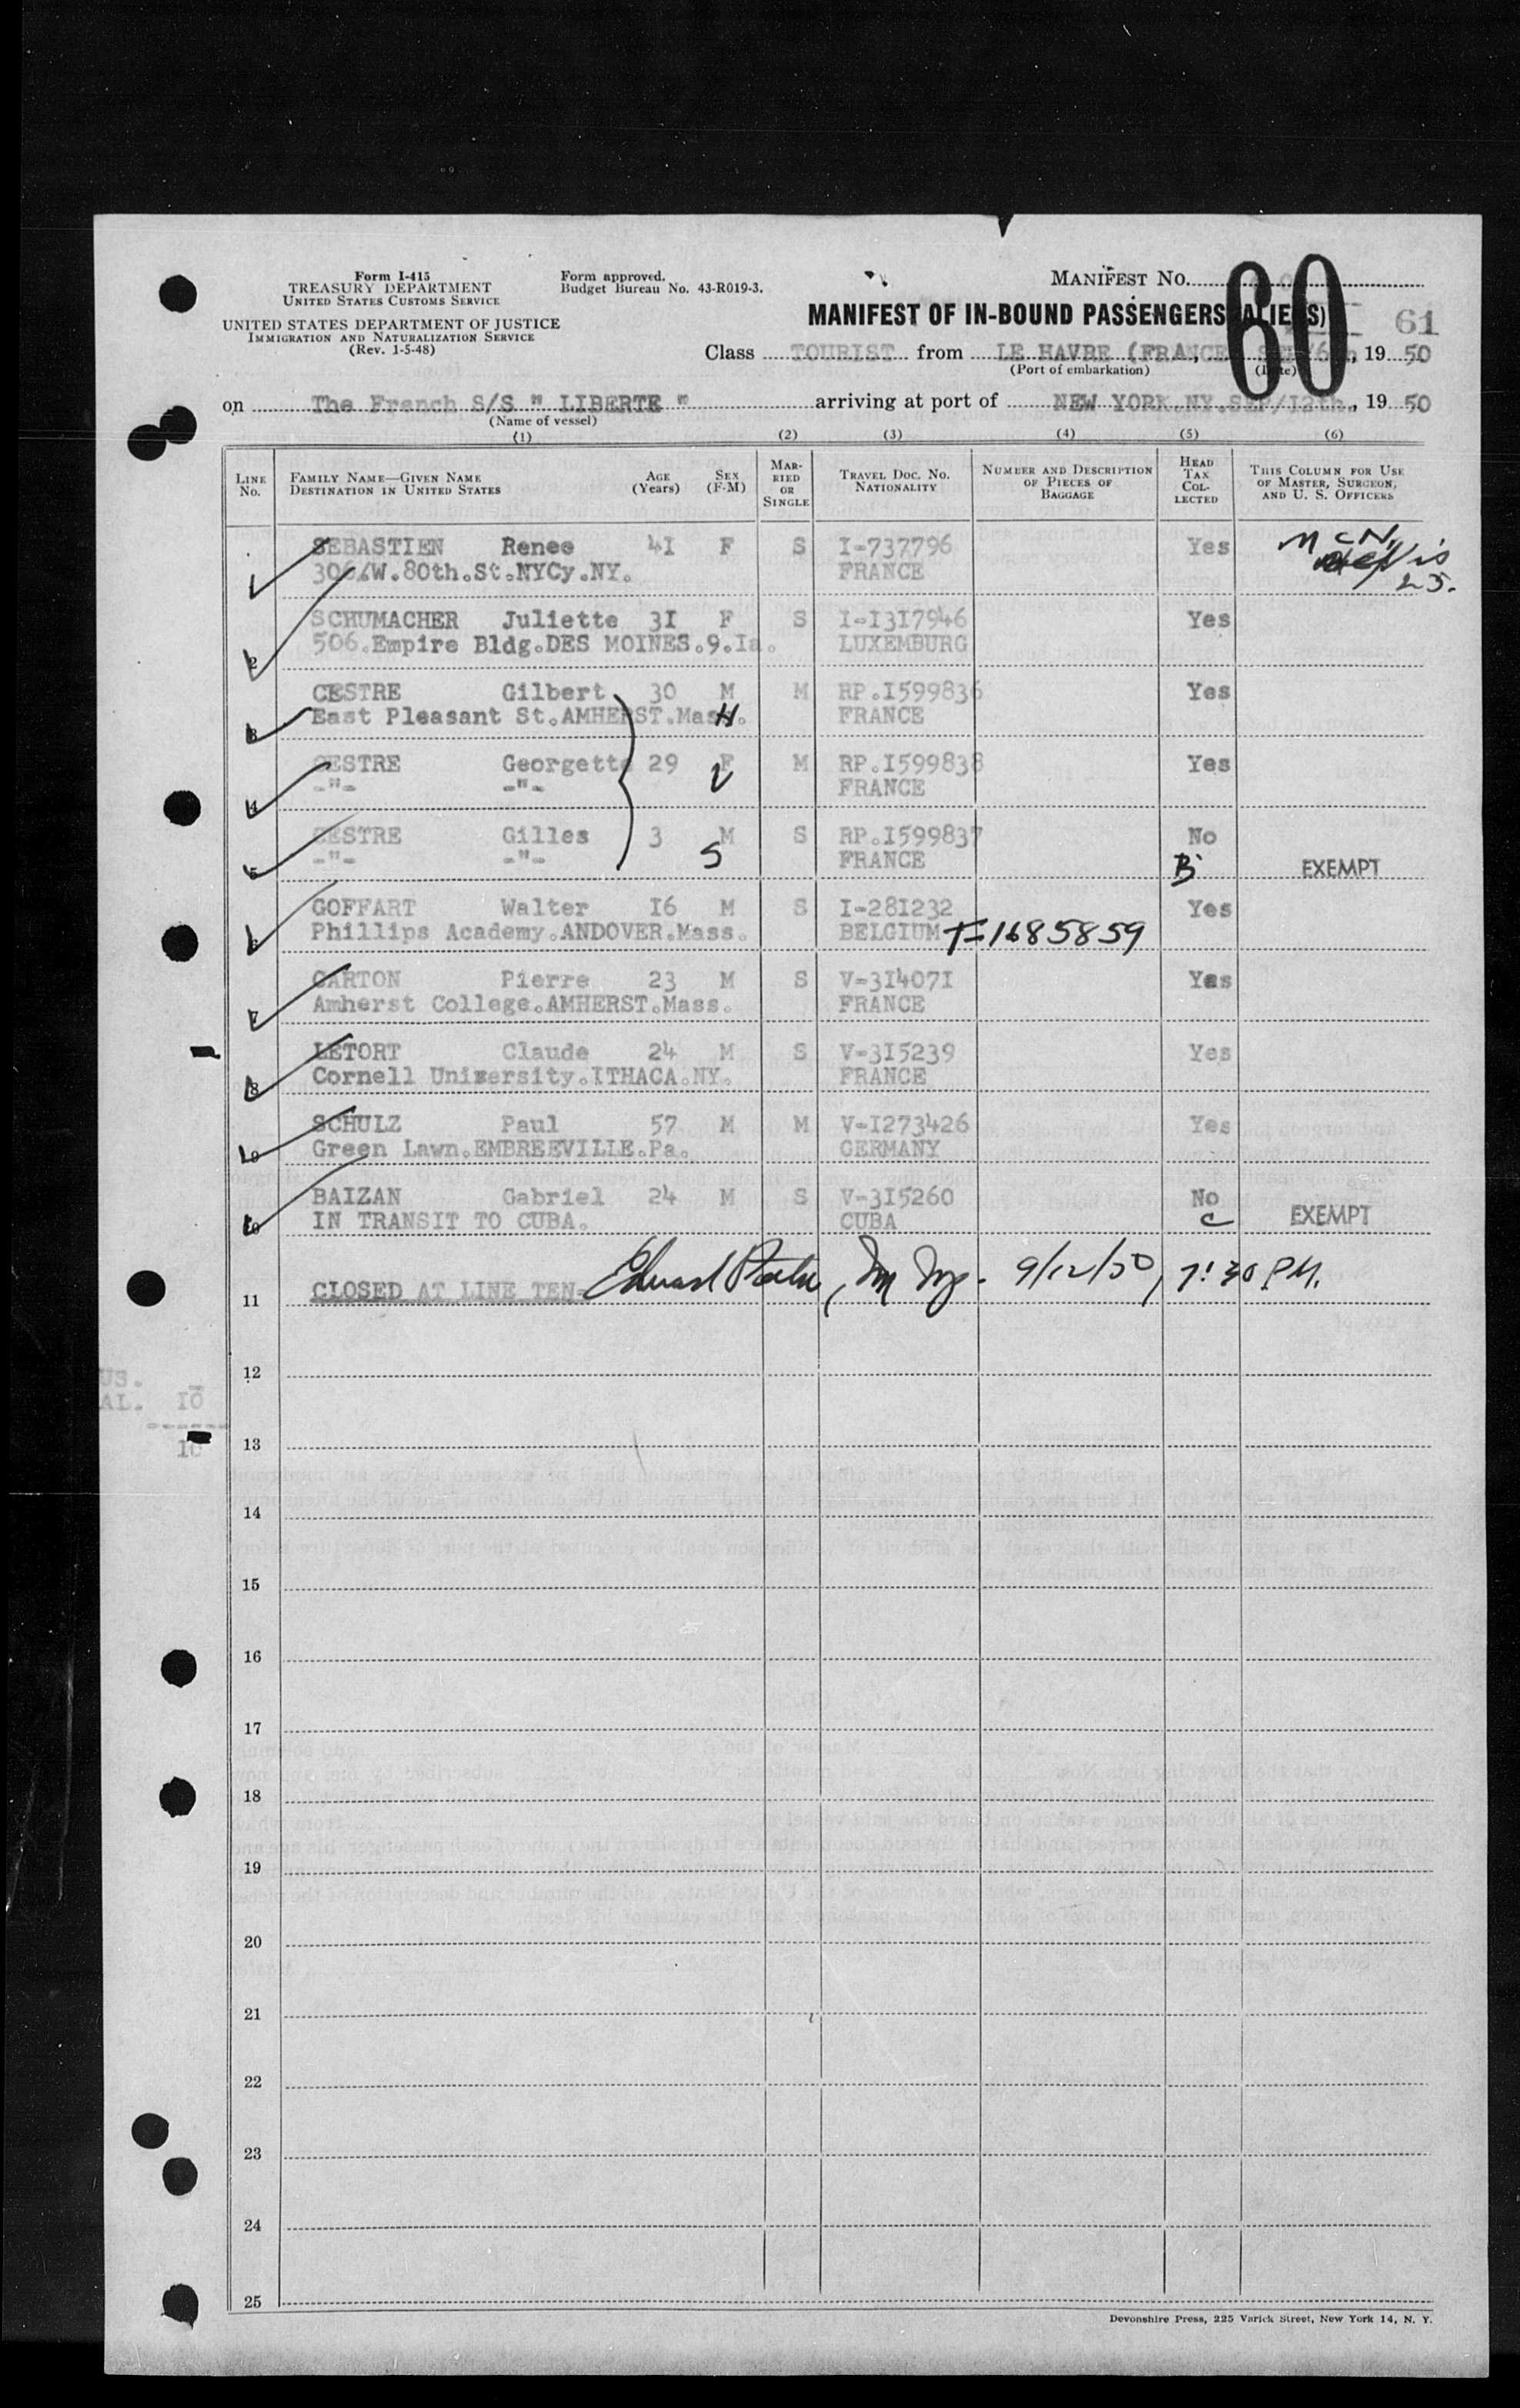 Form I-415
TREASURY DEPARTMENT
UNITED STATES CUSTOMS SERVICE
UNITED STATES DEPARTMENT OF JUSTICE
IMMIGRATION AND NATURALIZATION SERVICE
(Rev. 1-5-48)
Form approved.
Budget Bureau No. 43-R019-3.
MANIFEST NO.
60
MANIFEST OF IN-BOUND PASSENGERS (ALIENS)
61
Class TOURIST from LE HAVRE (FRANCE, SEP/6th, 1950
(Port of embarkation) (Date)
on The French S/S " LIBERTE " arriving at port of NEW YORK.NY.SEP/12th., 1950
(Name of vessel)
(1) (2) (3) (4) (5) (6)
LINE No. FAMILY NAME—GIVEN NAME DESTINATION IN UNITED STATES AGE (Years) SEX (F-M) MARRIED OR SINGLE TRAVEL DOC. NO. NATIONALITY NUMBER AND DESCRIPTION OF PIECES OF BAGGAGE HEAD TAX COLLECTED THIS COLUMN FOR USE OF MASTER, SURGEON, AND U. S. OFFICERS
1 SEBASTIEN Renee 4I F S I-737796 Yes McN,
306/W.80th.St.NYCy.NY. FRANCE
25.
2 SCHUMACHER Juliette 3I F S I-I3I7946 Yes
506.Empire Bldg.DES MOINES.9.Ia. LUXEMBURG
3 CESTRE Gilbert 30 M M RP.I599836 Yes
East Pleasant St.AMHERST.Mass. H FRANCE
4 CESTRE Georgette 29 F M RP.I599838 Yes
-"- -"- FRANCE
5 CESTRE Gilles 3 M S RP.I599837 No
-"- -"- S FRANCE B EXEMPT
6 GOFFART Walter I6 M S I-28I232 Yes
Phillips Academy.ANDOVER.Mass. BELGIUM T-1685859
7 CARTON Pierre 23 M S V-3I407I Yes
Amherst College.AMHERST.Mass. FRANCE
8 LETORT Claude 24 M S V-3I5239 Yes
Cornell University.ITHACA.NY. FRANCE
9 SCHULZ Paul 57 M M V-I273426 Yes
Green Lawn.EMBREEVILLE.Pa. GERMANY
10 BAIZAN Gabriel 24 M S V-3I5260 No
IN TRANSIT TO CUBA. CUBA C EXEMPT
11 CLOSED AT LINE TEN- Edward 9/12/50, 7:30 P.M.
12
US.
AL. I0
13
14
15
16
17
18
19
20
21
22
23
24
25
Devonshire Press, 225 Varick Street, New York 14, N. Y.